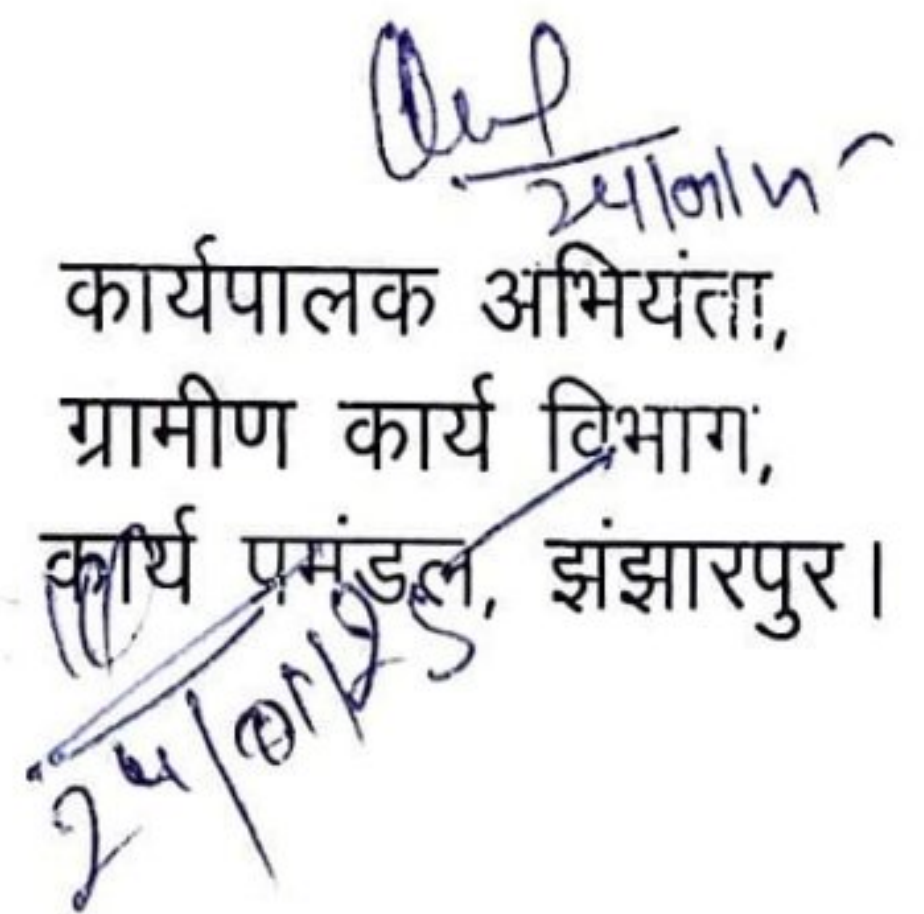 24/01/25
कार्यपालक अभियंता,
ग्रामीण कार्य विभाग,
कार्य प्रमंडल, झंझारपुर।
24/01/25